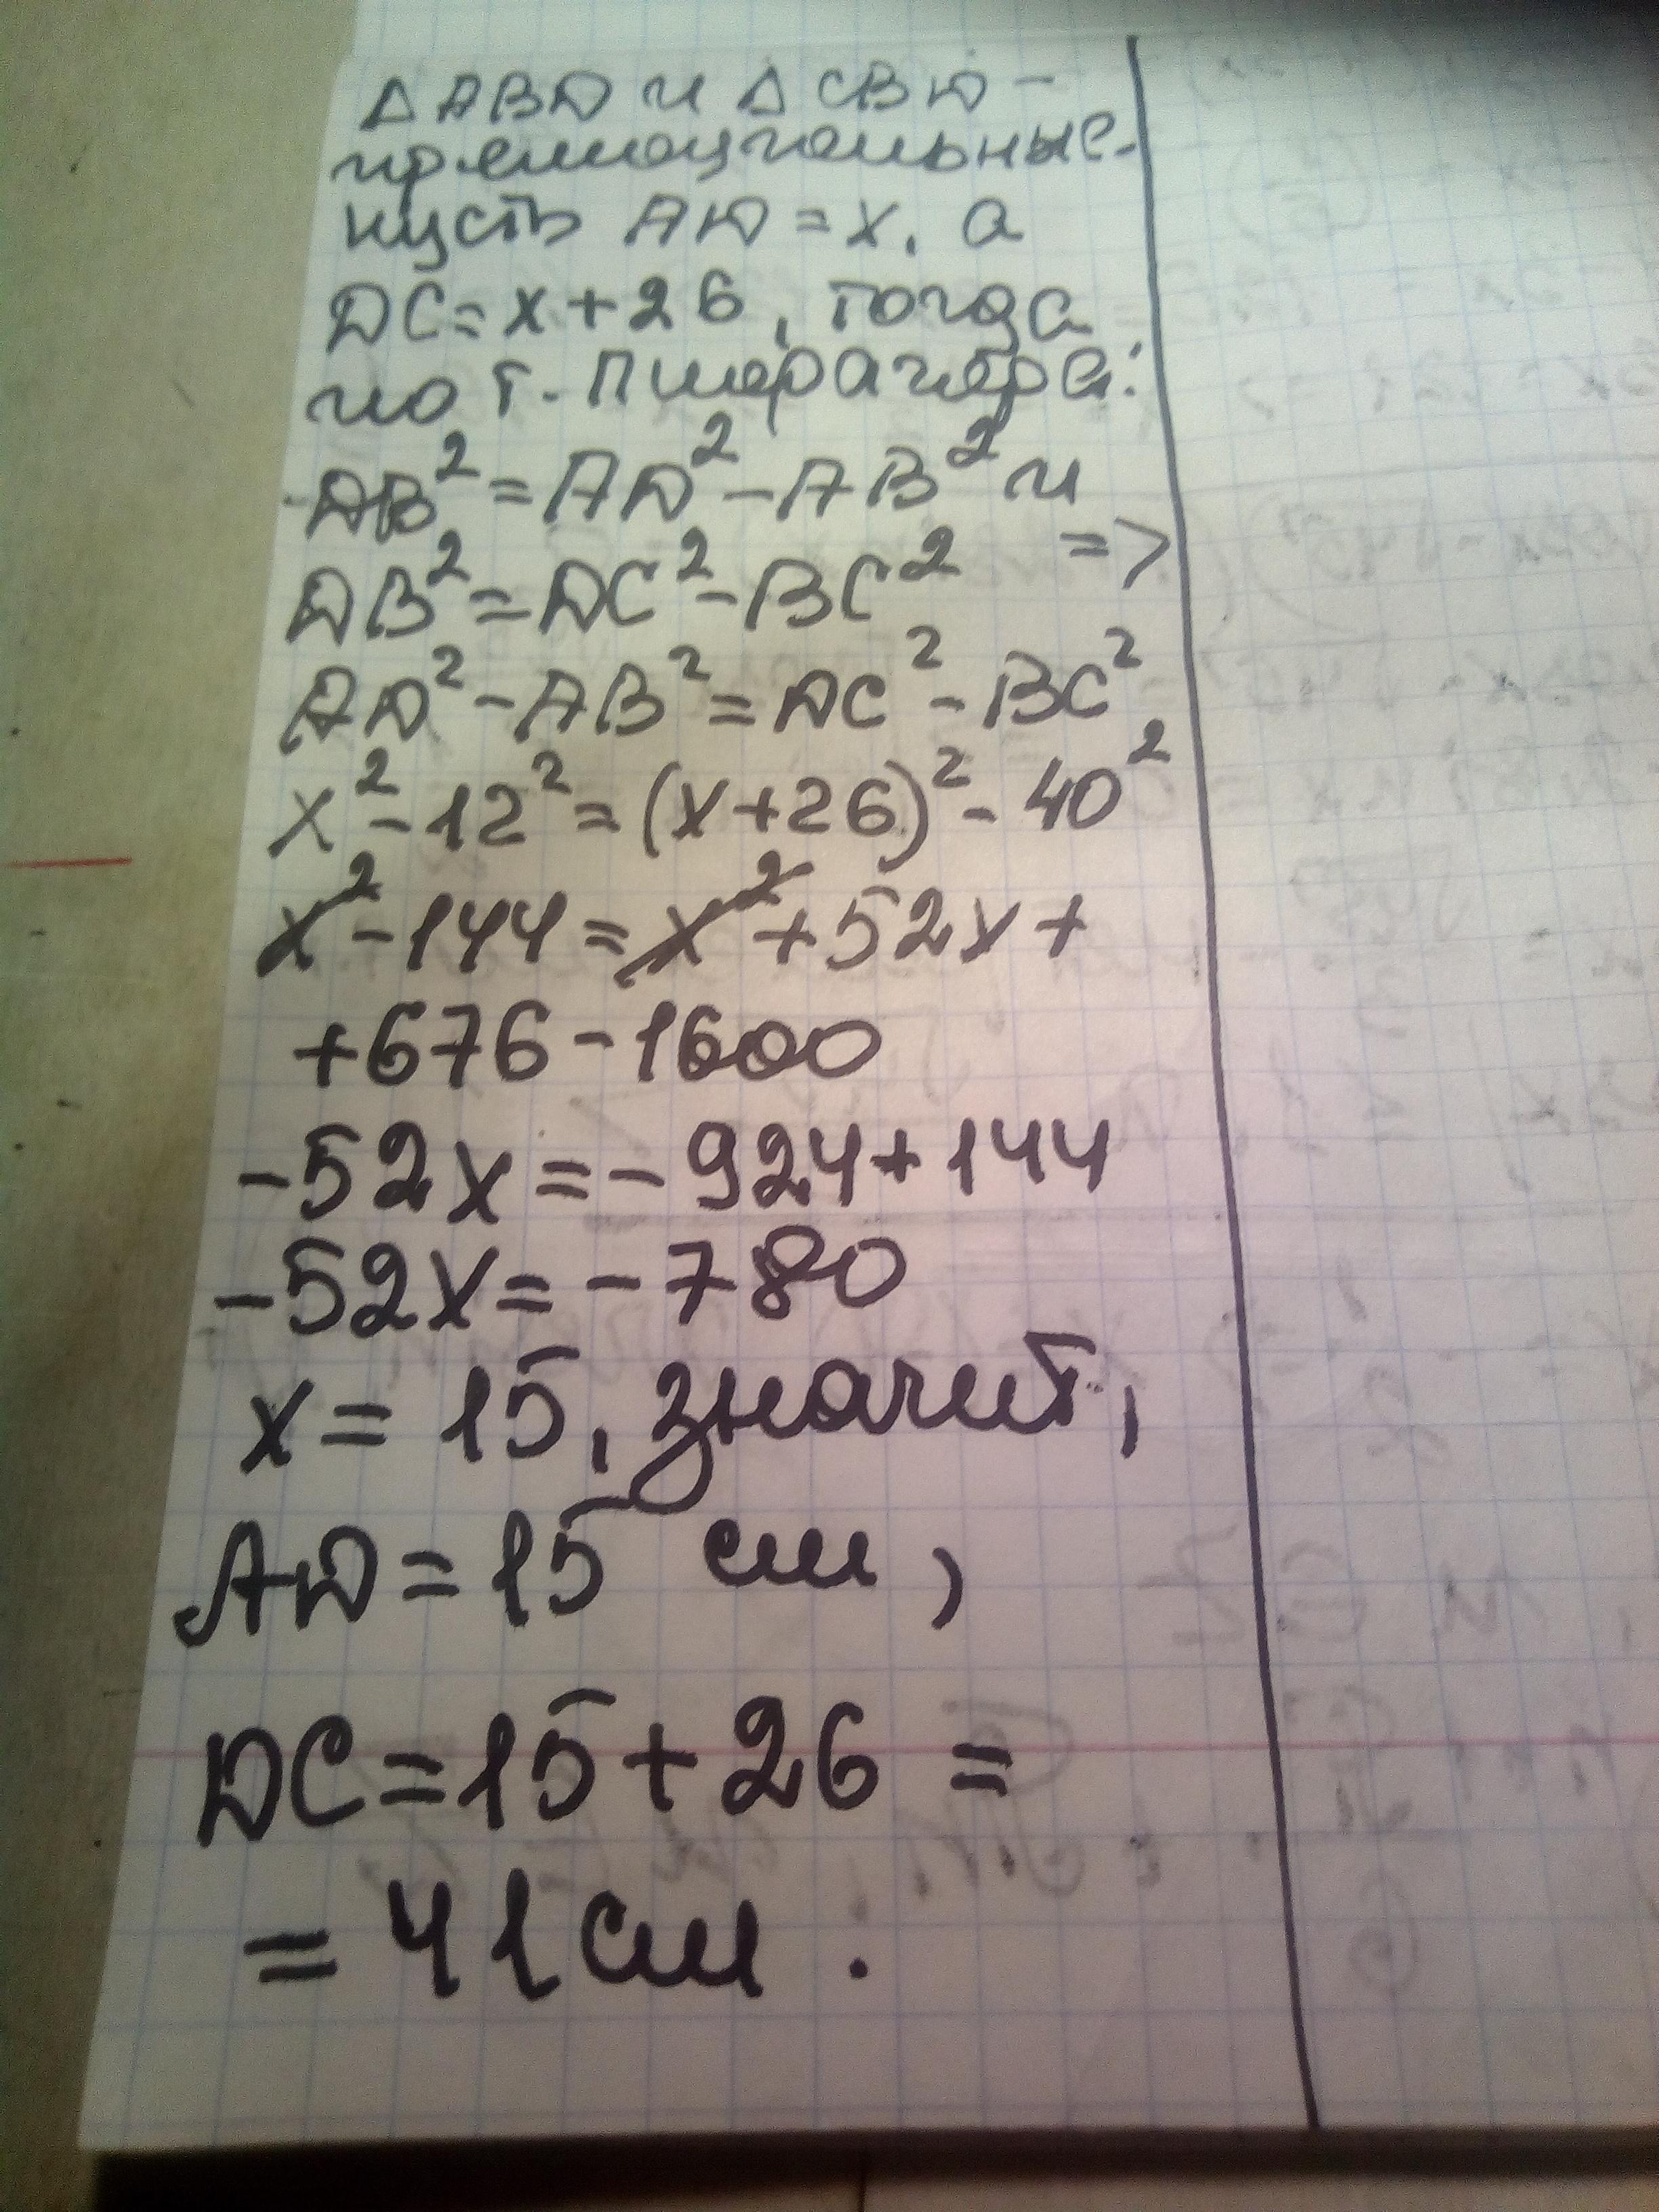 Δ ABD и Δ CBD -
прямоугольные.
пусть AD = x, а
DC = x + 26, тогда
по т. Пифагора:
DB² = AD² - AB² и
DB² = DC² - BC² =>
AD² - AB² = DC² - BC²,
x² - 12² = (x + 26)² - 40²
x² - 144 = x² + 52x +
+ 676 - 1600
- 52x = - 924 + 144
- 52x = - 780
x = 15, значит,
AD = 15 см,
DC = 15 + 26 =
= 41 см.